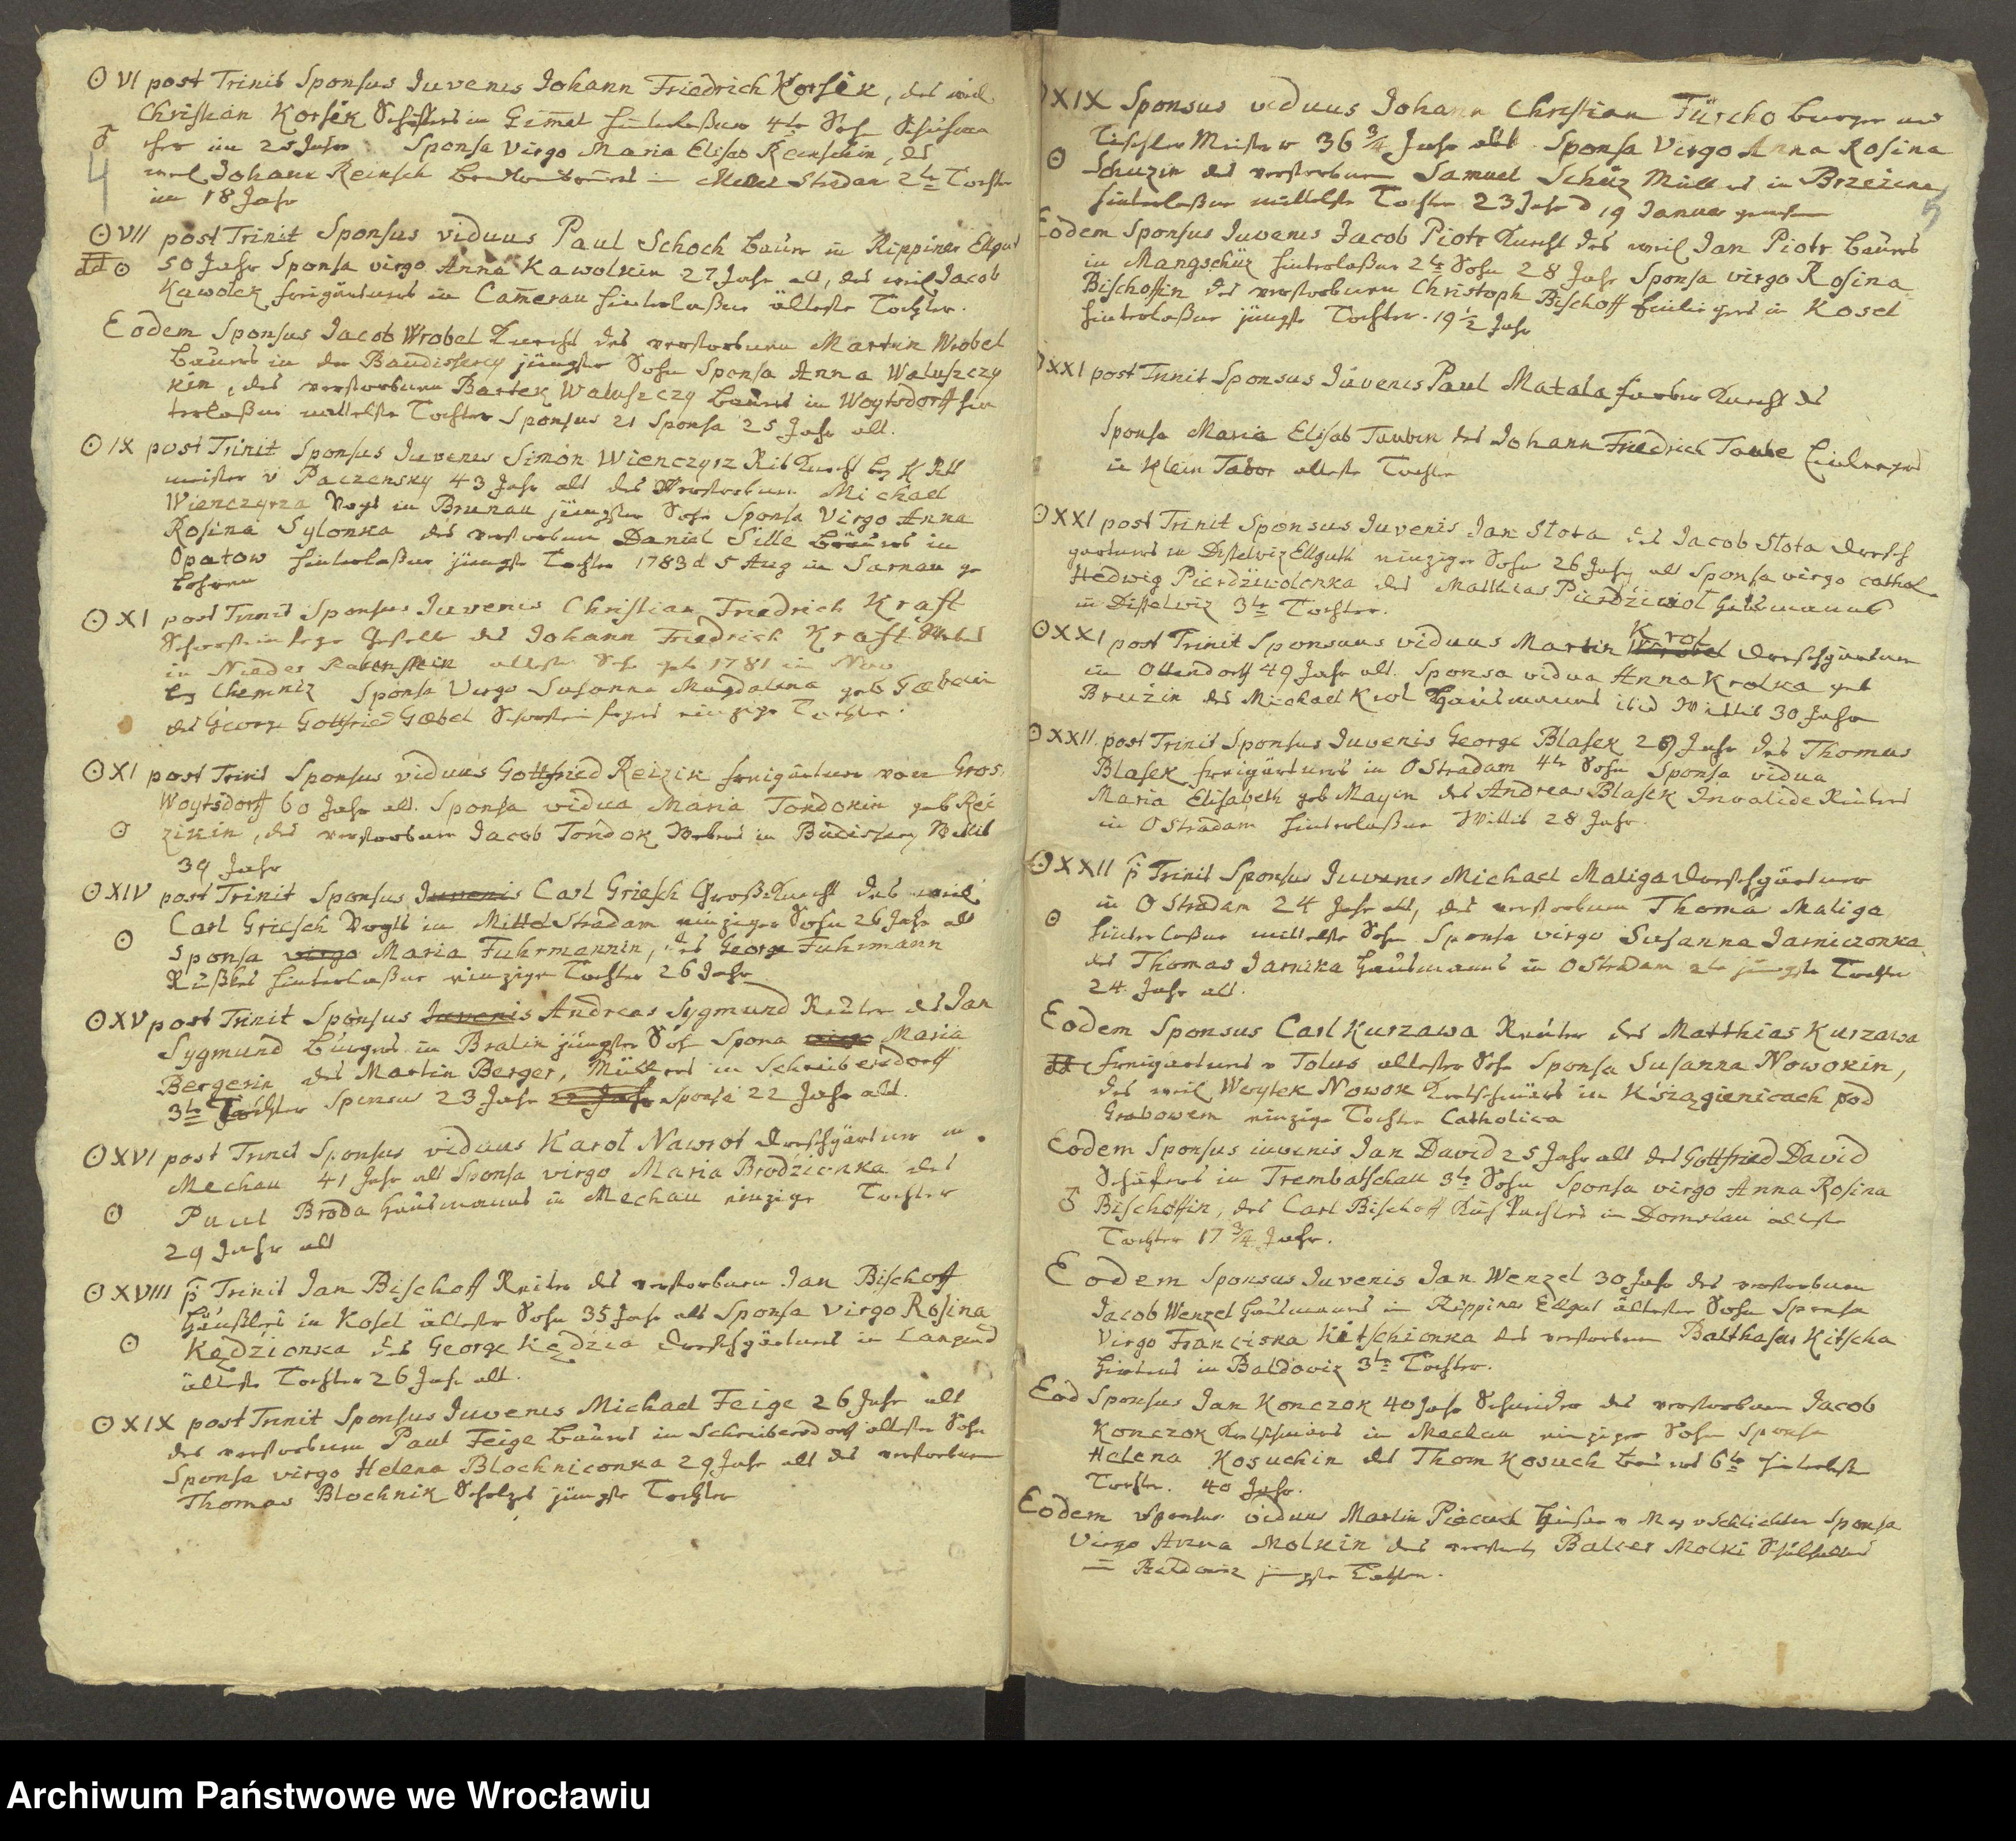 ☉ VI post Trinit Sponsus Juvenis Johann Friedrich Korsék, des weil
Christian Korsék Schäfers in hinterlaßner 4te Sohn
♂ im 25 Jahr. Sponsa Virgo Maria Elisab Reinschin, des
4
weil Johann Reinsch in Mittel Stradam 2te Tochter
im 18 Jahr
☉ VII post Trinit Sponsus viduus Paul Schoch Bauer in Rippiner Ellgut
dd ☉ 50 Jahr Sponsa virgo Anna Kawolkin 27 Jahr alt, des weil Jacob
Kawolek freigärtners in Cam̄erau hinterlaßne älteste Tochter.
Eodem Sponsus Jacob Wrobel Knecht des verstorbenen Martin Wrobel
Bauers in der jüngster Sohn Sponsa Anna Waluszczy
kin, des verstorbenen Bartek Waluszczy Bauers in Woytsdorff hin
terlaßne mittelste Tochter Sponsus 21 Sponsa 25 Jahr alt.
☉ IX post Trinit Sponsus Juvenis Simon Wienczyrz Knecht bey H Ritt
meister v Paczensky 43 Jahr alt des verstorbenen Michael
Wienczyrza Vogt in Brunau jüngster Sohn Sponsa Virgo Anna
Rosina Sylonka des verstorbenen Daniel Sille Bauers in
Opatow hinterlaßne jüngste Tochter 1783 d 5 Aug in Sarnau ge
bohren
☉ XI post Trinit Sponsus Juvenis Christian Friedrich Kraft
Schornsteinfeger Gesell des Johann Friedrich Kraft
in Nieder Rabenstein älteste Sohn geb 1781 in Nov
bey Chemniz Sponsa Virgo Susanna Magdalena geb Gœbelin
des George Gottfried Gœbel Schornsteinfegers einzige Tochter.
☉ XI post Trinit Sponsus viduus Gottfried Reizik freigärtner von Gros
Woytsdorff 60 Jahr alt. Sponsa vidua Maria Tondokin geb Rei
☉ zikin, des verstorbenen Jacob Tondok in Wittib
39 Jahr
☉ XIV post Trinit Sponsus Juvenis Carl Griesch Großknecht des weil
Carl Griesch Vogts in Mittel Stradam einziger Sohn 26 Jahr alt
☉ Sponsa virgo Maria Fuhrmannin, des George Fuhrmann
hinterlaßne einzige Tochter 26 Jahr
☉ XV post Trinit Sponsus Juvenis Andreas Sygmund Reuter des Jan
Sygmund Bürgers in Bralin jüngster Sohn Spona virgo Maria
Bergerin des Martin Berger, Müllers in Schreibersdorff
3te Tochter Sponsus 23 Jahr 22 Jahr Sponsa 22 Jahr alt.
☉ XVI post Trinit Sponsus viduus Karol Nawrot Dreschgärtner in
Mechau 41 Jahr alt Sponsa virgo Maria Brodzionka des
☉ Paul Broda Hausmanns in Mechau einzige Tochter
29 Jahr alt
☉ XVIII p̄ Trinit Jan Bischoff Reiter des verstorbenen Jan Bischoff
Häußlers in Kosel ältester Sohn 35 Jahr alt Sponsa virgo Rosina
☉ Kędzionka des George Kędzia Dreschgärtners in
älteste Tochter 26 Jahr alt.
☉ XIX post Trinit Sponsus Juvenis Michael Feige 26 Jahr alt
des verstorbenen Paul Feige Bauers in Schreibersdorf ältester Sohn
Sponsa virgo Helena Blochniconka 29 Jahr alt des verstorbenen
Thomas Blochnik Scholzes jüngste Tochter
XIX Sponsus viduus Johann Christian Türcko Burger und
Tischler Meister 36 3/4 Jahr alt. Sponsa Virgo Anna Rosina
☉ Schuzin des verstorbenen Samuel Schüz Müllers in Brzezine
hinterlaßne mittelste Tochter 23 Jahr d 19 Januar gewesen
5
Eodem Sponsus Juvenis Jacob Piotr Knecht des weil Jan Piotr Bauers
in Mangschüz hinterlaßner 2te Sohn 28 Jahr Sponsa virgo Rosina
Bischoffin des verstorbenen Christoph Bischoff in Kosel
hinterlaßne jüngste Tochter. 19 1/2 Jahr
XXI post Trinit Sponsus Juvenis Paul Matala Knecht des
Sponsa Maria Elisab Taubin des Johann Friedrich Taube Einliegers
in Klein Tabor älteste Tochter
☉ XXI post Trinit Sponsus Juvenis Jan Slota des Jacob Slota Dresch
gärtners in Distelwiz Ellguth einziger Sohn 26 Jahr alt Sponsa virgo cathol
Hedwig Pierdziwolonka des Matthias Pierdziwol Hausmanns
in Distelwiz 3te Tochter.
☉ XXI post Trinit Sponsus viduus Martin Wrobel Krol Dreschgärtner
in Ottendorff 49 Jahr alt. Sponsa vidua Anna Krolka geb
Bruzin des Michael Krol Hausmanns ibid Wittib 30 Jahr
☉ XXII post Trinit Sponsus Juvenis George Blasek 29 Jahr des Thomas
Blasek freigärtners in O Stradam 4te Sohn Sponsa vidua
Maria Elisabeth geb Mayin des Andreas Blasek Invalide Reuters
in O Stradam hinterlaßne Wittib 28 Jahr.
☉ XXII p̄ Trinit Sponsus Juvenis Michael Maliga Dreschgärtner
in O Stradam 24 Jahr alt, des verstorbenen Thoma Maliga
☉ hinterlaßner mittelste Sohn Sponsa virgo Susanna Jarniczonka
des Thomas Jarnika Hausmanns in O Stradam 2te jüngste Tochter
24. Jahr alt.
Eodem Sponsus Carl Kurzawa Reuter des Matthias Kurzawa
dd freigärtners v Tolus ältester Sohn Sponsa Susanna Nowokin,
des weil Woytek Nowok Kretschmers in Książienicach pod
Grabowem einzige Tochter Catholica
Eodem Sponsus iuvenis Jan David 25 Jahr alt des Gottfried David
Schäfers in Trembatschau 3te Sohn Sponsa virgo Anna Rosina
♂ Bischoffin, des Carl Bischoff in Domslau älteste
Tochter 17 3/4 Jahr.
Eodem Sponsus Juvenis Jan Wenzel 30 Jahr des verstorbenen
Jacob Wenzel Hausmanns in Rippiner Ellgut ältester Sohn Sponsa
Virgo Franciska Kitschionka des verstorbenen Balthasar Kitscha
Hirtens in Baldowiz 3te Tochter.
Eod Sponsus Jan Konczok 40 Jahr Schneider des verstorbenen Jacob
Konczok Kretschmers in Mechau einziger Sohn Sponsa
Helena Kosuchin des Thom Kosuch Bauers 6te
Tochter. 40 Jahr.
Eodem Sponsus viduus Martin Sponsa
Virgo Anna Molkin des verstorb Balcer Molki
in Baldowiz jüngste Tochter.
Archiwum Państwowe we Wrocławiu